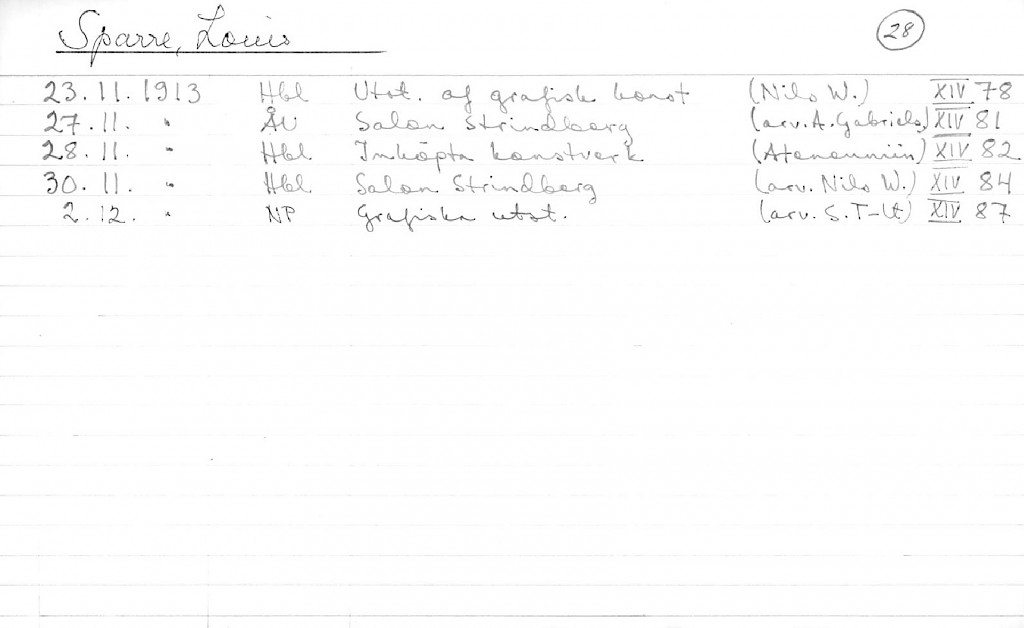 Sparre, Louis 28
23.11.1913 Hbl Utst. af grafisk konst (Nils W.) XIV 78
27.11. " ÅU Salon Strindberg (arv. A. Gabriels) XIV 81
28.11. " Hbl Inköpta konstverk (Ateneumiin) XIV 82
30.11. " Hbl Salon Strindberg (arv. Nils W.) XIV 84
2.12. " NP Grafiska utst. (arv. S. T-lt) XIV 87